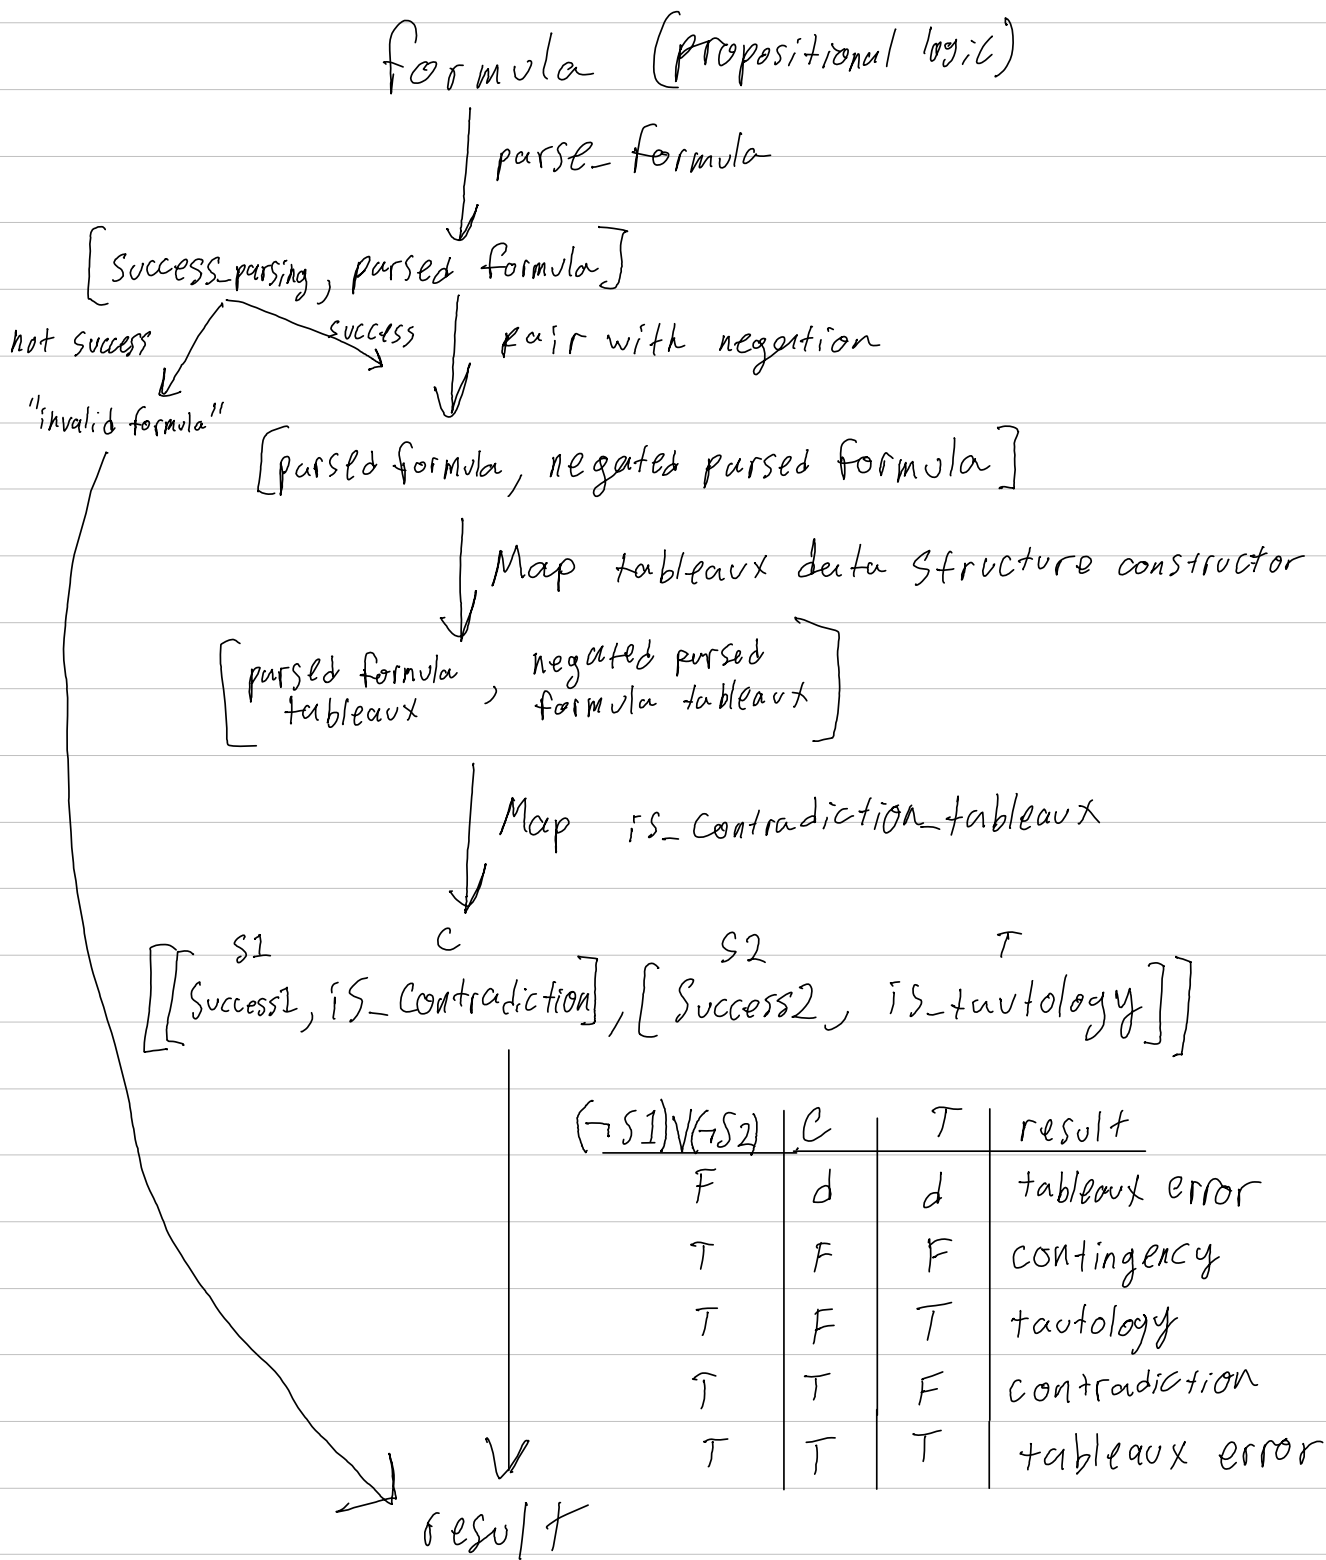 formula (propositional logic)
parse_formula
[success_parsing, parsed formula]
not success
success
pair with negation
"invalid formula"
[parsed formula, negated parsed formula]
Map tableaux data structure constructor
[parsed formula tableaux, negated parsed formula tableaux]
Map is_contradiction_tableaux
S1 C S2 T
[[Success1, is_contradiction], [Success2, is_tautology]]
(¬S1)V(¬S2) C T result
F d d tableaux error
T F F contingency
T F T tautology
T T F contradiction
T T T tableaux error
result